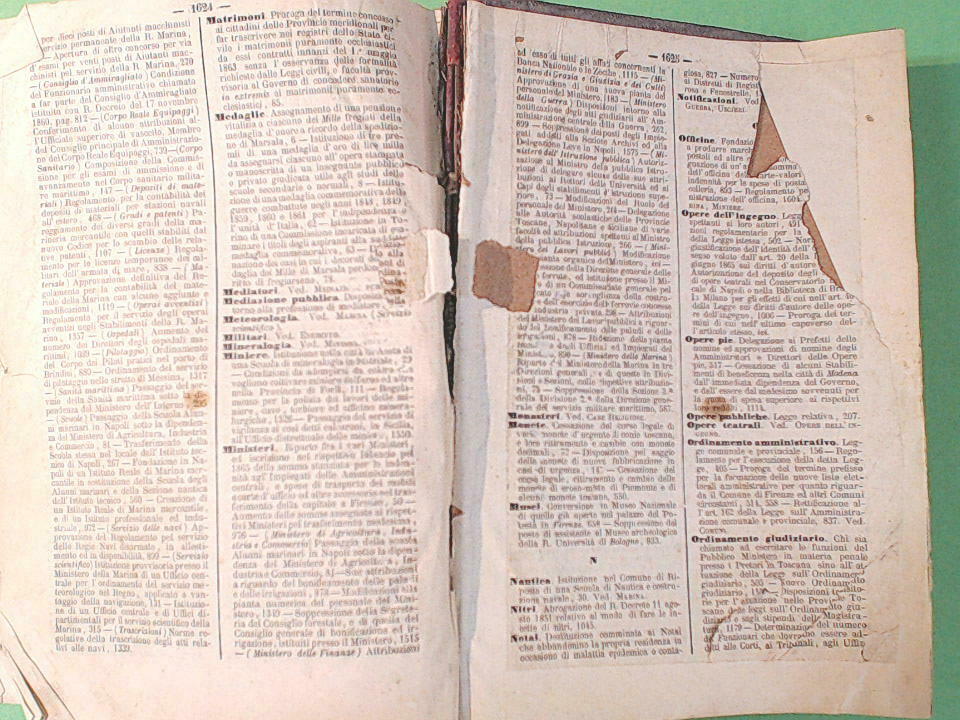 — 1624 —
per dieci posti di Aiutanti macchinisti
servizio permanente della R. Marina,
— Apertura di altro concorso per via
d'esami per venti posti di Aiutanti mac-
chinisti pel servizio della R. Marina, 270
— (Consiglio d'Ammiragliato) Condizione
del Funzionario amministrativo chiamato
a far parte del Consiglio d'Ammiragliato
istituito con R. Decreto del 17 novembre
1860, pag. 812 — (Corpo Reale Equipaggi)
Conferimento di alcune attribuzioni al-
l'Ufficiale superiore di vascello, Membro
del Consiglio principale di Amministrazio-
ne del Corpo Reale Equipaggi, 739 — (Corpo
Sanitario) Composizione della Commis-
sione per gli esami di ammissione e di
avanzamento nel Corpo sanitario milita-
re marittimo, 147 — (Depositi di mate-
riali) Regolamento per la contabilità dei
depositi di materiali per stazioni navali
all'estero, 468 — (Gradi e patenti) Pa-
reggiamento dei diversi gradi della ma-
rineria mercantile con quelli stabiliti dal
nuovo Codice per lo scambio delle rela-
tive patenti, 1107 — (Licenze) Regola-
mento per le licenze temporanee dei mi-
litari dell'armata di mare, 838 — (Ma-
teriale) Approvazione definitiva del Re-
golamento per la contabilità del mate-
riale della Marina con alcune aggiunte e
modificazioni, 1119 — (Operai avventizi)
Regolamento per il servizio degli operai
avventizi negli Stabilimenti della R. Ma-
rina, 1357 — (Ospedali) Aumento del
numero dei Direttori degli ospedali ma-
rittimi, 1039 — (Pilotaggio) Ordinamento
del Corpo dei Piloti pratici nel porto di
Brindisi, 880 — Ordinamento del servizio
di pilotaggio nello stretto di Messina, 1317
— (Sanità marittima) Passaggio del ser-
vizio della Sanità marittima sotto la di-
pendenza del Ministero dell'Interno, 295
— (Scuole) Passaggio della Scuola Alun-
ni marinari in Napoli sotto la dipendenza
del Ministero di Agricoltura, Industria
e Commercio, 81 — Trasferimento della
Scuola stessa nel locale dell'Istituto tecni-
co di Napoli, 267 — Fondazione in Na-
poli di un Istituto Reale di Marina mer-
cantile in sostituzione della Scuola degli
Alunni marinari e della Sezione nautica
dell'Istituto tecnico, 560 — Creazione di
un Istituto Reale di Marina mercantile,
e di un Istituto professionale ed indu-
striale, 972 — (Servizio delle navi) Ap-
provazione del Regolamento pel servizio
delle Regie Navi disarmate, in allesti-
mento ed in disponibilità, 899 — (Servizio
scientifico) Istituzione provvisoria presso il
Ministero della Marina di un Ufficio cen-
trale per l'ordinamento del servizio me-
teorologico nel Regno, applicato a van-
taggio della navigazione, 131 — Istituzio-
ne di un Ufficio centrale e di Uffici di-
partimentali per il servizio scientifico della
Marina, 315 — (Trascrizioni) Norme re-
golative della trascrizione degli atti rela-
tivi alle navi, 1339.
Matrimoni. Proroga del termine concesso
ai cittadini delle Provincie meridionali per
far trascrivere nei registri dello Stato ci-
vile i matrimoni puramente ecclesiastici
da essi contratti innanzi del 1.° maggio
1863 senza l'osservanza delle formalità
richieste dalle Leggi civili, e facoltà prov-
visoria al Governo di concedere sanatorie
in extremis ai matrimoni puramente ec-
clesiastici, 85.
Medaglie. Assegnamento di una pensione
vitalizia a ciascuno dei Mille fregiati della
medaglia d'onore a ricordo della spedizio-
ne di Marsala, 6 — Istituzione di tre pre-
mi di una medaglia d'oro di lire mille
da assegnarsi ciascuno all'opera stampata
o manoscritta di un insegnante pubblico
o privato giudicata utile agli studi delle
scuole secondarie o normali, 8 — Istitu-
zione di una medaglia commemorativa delle
guerre combattute negli anni 1848, 1849,
1859, 1860 e 1861 per l'indipendenza e
l'unità d'Italia, 62 — Istituzione in To-
rino di una Commissione incaricata di esa-
minare i titoli degli aspiranti alla suddetta
medaglia commemorativa,
nazione dei casi in cui i decorati della me-
daglia dei Mille di Marsala perdono il di-
ritto di fregiarsene, 78.
Mediatori. Ved.
Mediazione pubblica. Disposizioni
torno alla professione di mediatore
Meteorologia. Ved. Marina (Servizio
scientifico).
Militari. Ved. Esercito.
Mineralogia. Ved. Miniere.
Miniere. Istituzione nella città di Aosta di
una Scuola di mineralogia in Sottrate, 29
— Condizioni da adempiersi da coloro che
vogliono coltivare miniere di ferro ed altro
nella Provincia di Forlì, 111 — Regola-
mento per la polizia dei lavori delle mi-
niere, cave, torbiere ed officine mineral-
lurgiche, 1526 — Passaggio del servizio
di alcuni comuni esistenti in Sicilia, sul-
l'Ufficio distrettuale delle miniere, 1550.
Ministeri. Riparto fra i diversi Ministeri
ed iscrizione nei rispettivi bilanci pel
1865 della somma stanziata per le inden-
nità agl'Impiegati delle Amministrazioni
centrali, e spese di trasporto dei mobili
e carte d'ufficio ed altre accessorie nel tras-
ferimento della capitale a Firenze, 50 —
Aumento delle somme assegnate ai rispet-
tivi Ministeri pel trasferimento medesimo,
976 — (Ministero di Agricoltura, Indu-
stria e Commercio) Passaggio della Scuola
Alunni marinari in Napoli sotto la dipen-
denza del Ministero di Agricoltura, In-
dustria e Commercio, 81 — Sue attribuzioni
a riguardo del bonificamento delle paludi
e delle irrigazioni, 878 — Modificazioni alla
pianta numerica del personale del Mini-
stero, 1349 — Soppressione della Segrete-
ria del Consiglio forestale, e di quella del
Consiglio generale di bonificazione ed ir-
rigazione, istituiti presso il Ministero, 1515
— (Ministero delle Finanze) Attribuzioni
— 1625 —
ad esso di tutti gli affari concernenti la
Banca Nazionale e le Zecche, 1115 — (Mi-
nistero di Grazia e Giustizia e dei Culti)
Approvazione di una nuova pianta del
personale del Ministero, 1183 — (Ministero
della Guerra) Disposizioni intorno alla
notificazione degli atti giudiziarii all'Am-
ministrazione centrale della Guerra, 262,
699 — Soppressione dei posti degli Impie-
gati addetti alla Sezione Archivi ed alla
Delegazione Leve in Napoli, 1573 — (Mi-
nistero dell'Istruzione pubblica) Autoriz-
zazione al Ministro della pubblica Istruzio-
ne di delegare alcune delle sue attri-
buzioni ai Rettori delle Università ed ai
Capi degli stabilimenti d'istruzione supe-
riore, 73 — Modificazioni del Ruolo del
personale del Ministero, 244 — Delegazione
alle Autorità scolastiche delle Provincie
Toscane, Napolitane e Siciliane di varie
facoltà ed attribuzioni spettanti al Ministro
della pubblica Istruzione, 266 — (Mini-
stero dei Lavori pubblici) Modificazione
pianta organica del Ministero,
sessione della Direzione generale delle
ferrate, ed istituzione presso il Mi-
di un Commissariato generale pel
sorveglianza della costru-
dell'esercizio delle ferrovie concesse
industria privata, 298 — Attribuzioni
Ministero dei Lavori pubblici a riguardo
del bonificamento delle paludi e delle
irrigazioni, 878 — Riduzione della pianta
degli Ufficiali ed Impiegati del
Ministero, 890 — (Ministero della Marina)
Riparto del Ministero della Marina in tre
Direzioni generali, e di queste in Divi-
sioni e Sezioni, colle rispettive attribuzio-
ni, 71 — Soppressione della Sezione 2.ª
della Divisione 2.ª dalla Direzione gene-
rale del servizio militare marittimo, 587.
Monasteri. Ved. Case Religiose.
Monete. Cessazione del corso legale di
varie monete d'argento di conio toscano,
e loro ritiramento e cambio con monete
decimali, 72 — Disposizione pel saggio
delle monete di nuova fabbricazione in
caso di urgenza, 147 — Cessazione del
corso legale, ritiramento e cambio delle
monete di eroso-misto di Piemonte e di
alcune monete toscane, 550.
Musei. Conversione in Museo Nazionale
di quello già aperto nel palazzo del Po-
testà in Firenze, 658 — Soppressione del
posto di assistente al Museo archeologico
della R. Università di Bologna, 933.
N
Nautica. Istituzione nel Comune di Ri-
posto di una Scuola di Nautica e costru-
zioni navali, 30. Ved. Marina.
Nitri. Abrogazione del R. Decreto 11 ago-
sto 1851 relativo al modo di fare le inchie-
ste di nitri, 1045.
Notai. Destituzione comminata ai Notai
che abbandonino la propria residenza in
occasione di malattia epidemica o conta-
giosa, 827 — Numero
ai Distretti di Regist
rosa e Fenestrelle,
Notificazioni. Ved
Guerra, Uscieri.
Officine. Fondazio
a produrre march
postali ed altre r
grazione di un'a
dell'officina delle carte-valori
indennità per le spese di posta
colleria, 893 — Regolamento pe
nistrazione dell'officina, 1604.
rina, Miniere.
Opere dell'ingegno. Legg
spettanti ai loro autori, 491
zioni regolamentarie per la
della Legge istessa, 502 — Nor
giustificazione dell'identità dell'
sesso voluto dall'art. 20 della
giugno 1865 sui diritti d'autore
Autorizzazione del deposito degli
di opere teatrali nel Conservatorio
cale di Napoli e nella Biblioteca di Br
in Milano per gli effetti di cui nell'art.
della Legge sui diritti d'autore delle ope-
re dell'ingegno, 1006 — Proroga dei ter-
mini di cui nell'ultimo capoverso del-
l'articolo stesso, ivi.
Opere pie. Delegazione ai Prefetti delle
nomine ed approvazioni di nomine degli
Amministratori e Direttori delle Opere
pie, 317 — Cessazione di alcuni Stabili-
menti di beneficenza nella città di Modena
dall'immediata dipendenza del Governo,
e dall'essere dal medesimo sovvenuti e per
di spesa superiore ai rispettivi
loro redditi, 1114.
Opere pubbliche. Legge relativa, 207.
Opere teatrali. Ved. Opere dell'in-
gegno.
Ordinamento amministrativo. Leg-
ge comunale e provinciale, 156 — Rego-
lamento per l'esecuzione della detta Leg-
ge, 405 — Proroga del termine prefisso
per la formazione delle nuove liste elet-
torali amministrative per quanto riguar-
da il Comune di Firenze ed altri Comuni
circostanti, 314, 358 — Rettificazione al-
l'art. 162 della Legge sull'Amministra-
zione comunale e provinciale, 837. Ved.
Comuni.
Ordinamento giudiziario. Chi sia
chiamato ad esercitare le funzioni del
Pubblico Ministero in materie penale
presso i Pretori in Toscana sino all'at-
tuazione della Legge sull'Ordinamento
giudiziario, 303 — Nuovo Ordinamento
giudiziario, — Disposizioni transito-
rie per l'attuazione nelle Provincie To-
scane delle leggi sull'Ordinamento giu-
diziario e sugli stipendi della Magistra-
tura, 1179 — Determinazione del numero
dei Funzionari che dovranno essere ad-
detti alle Corti, ai Tribunali, agli Uffizi